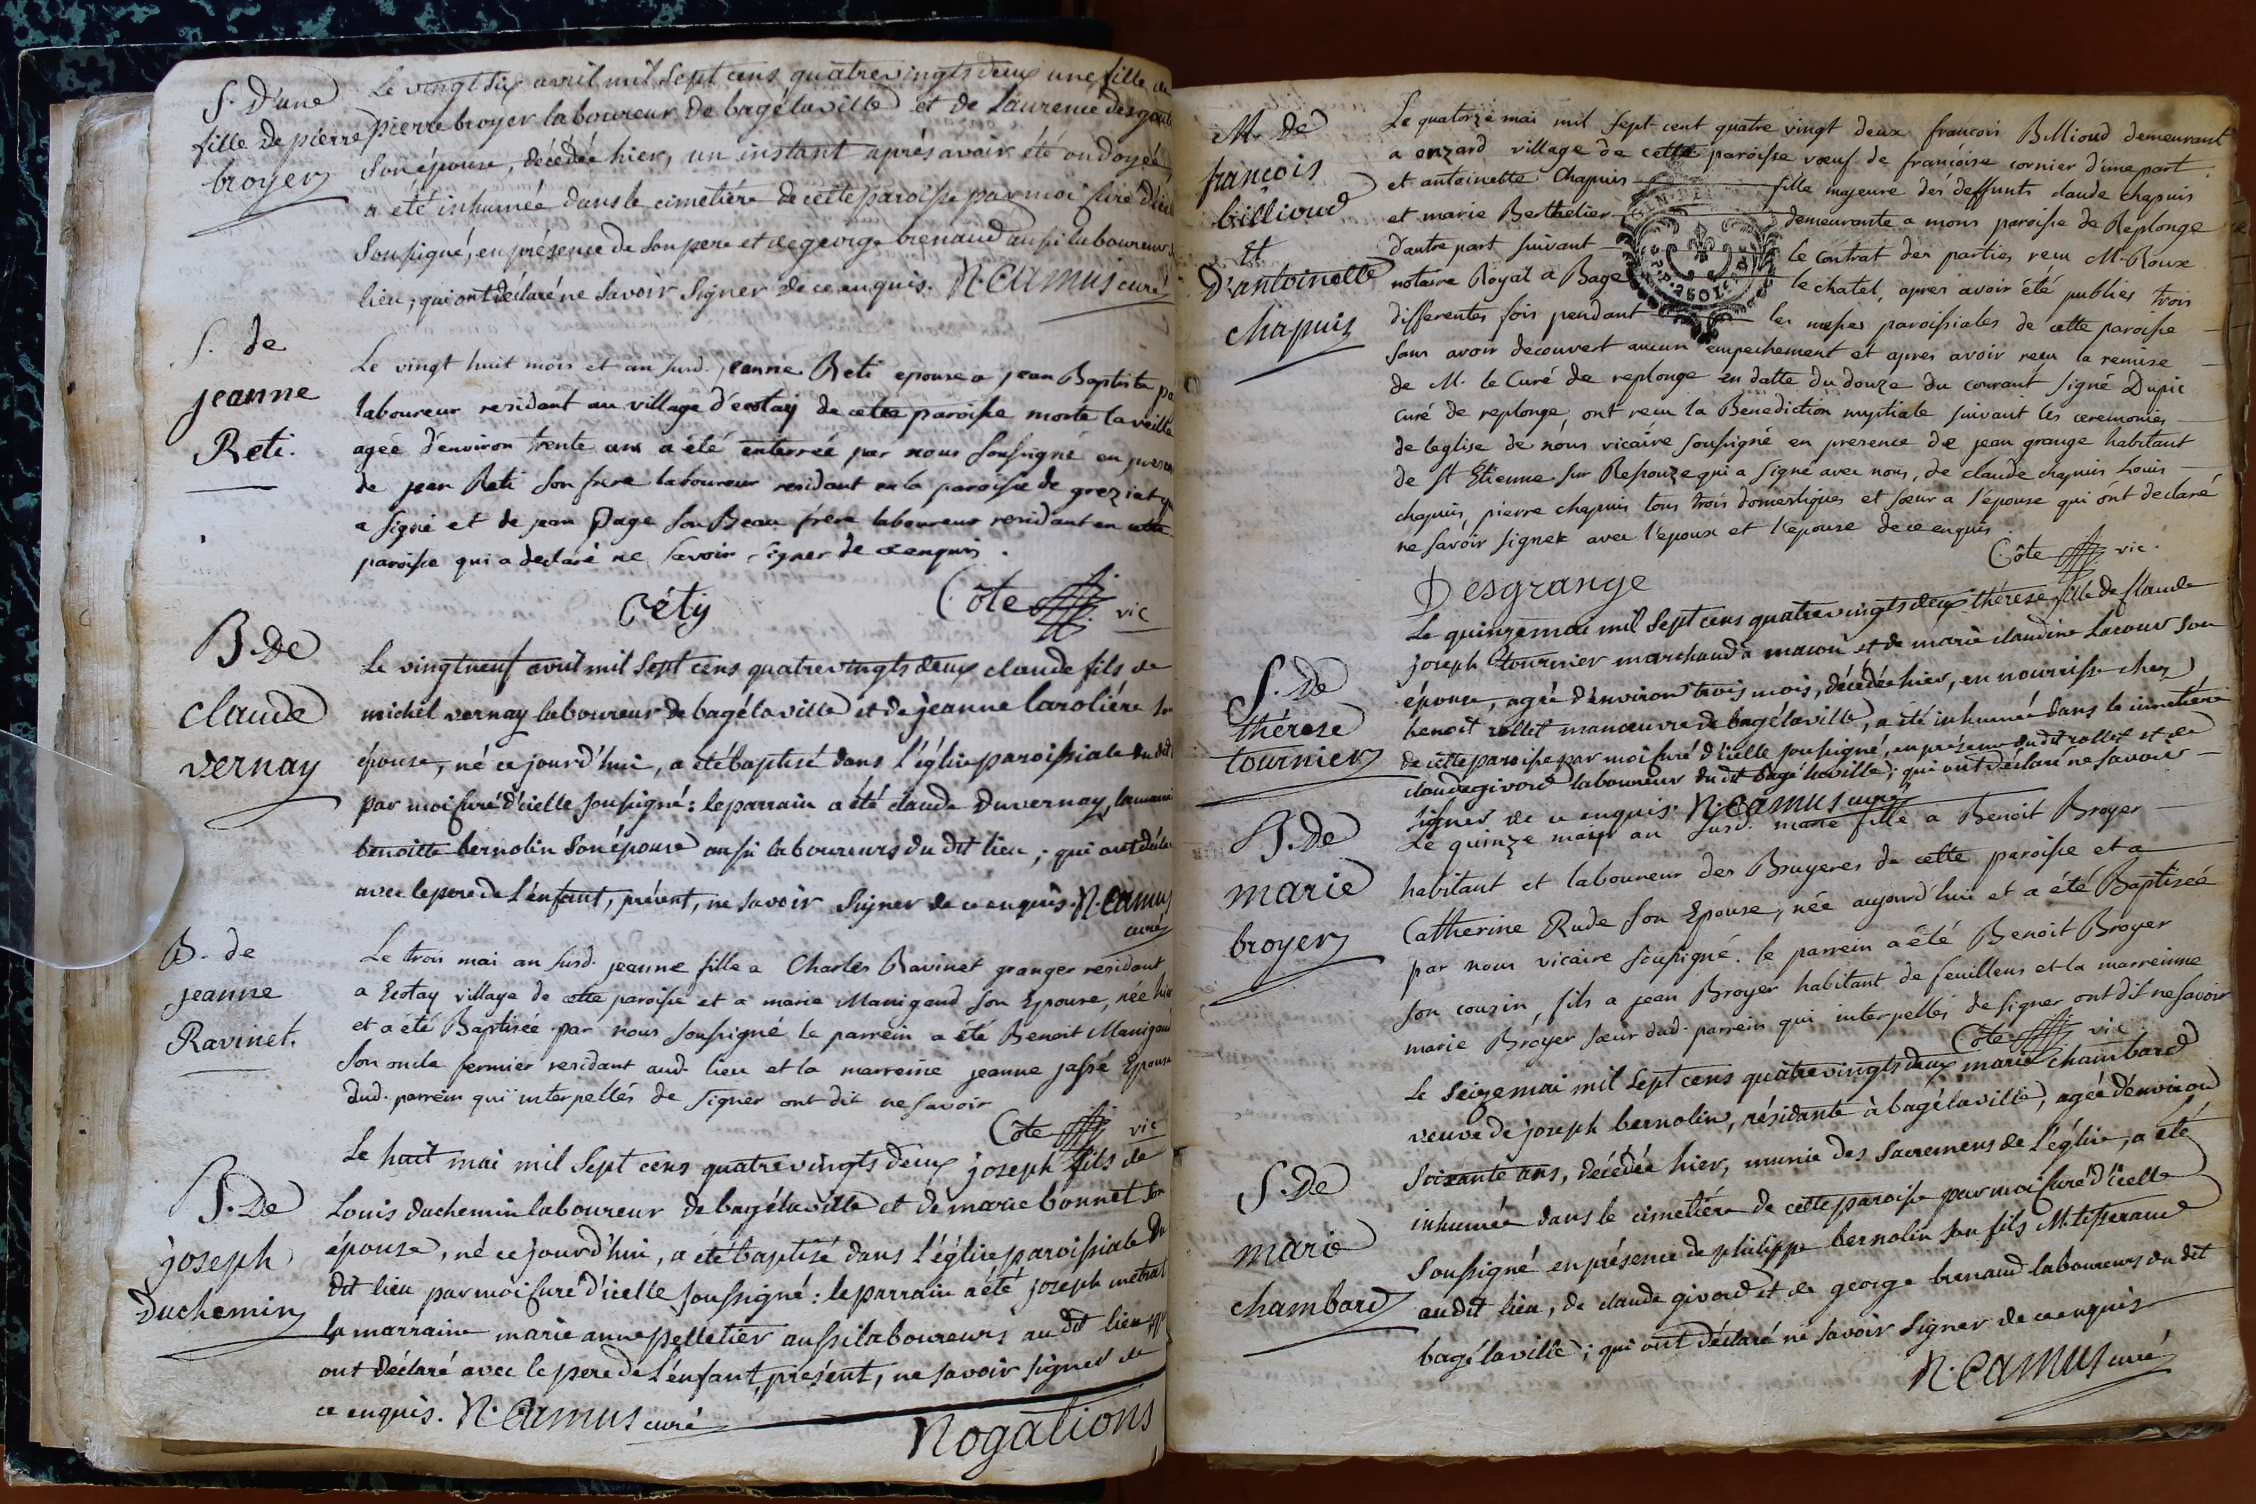 S. d'une
fille de pierre
broyer
Le vingt six avril mil sept cens quatrevingts deux une fille de
pierre broyer laboureur de bagélaville et de Laurence desgout
son épouse, décédée hier, un instant après avoir été ondoyée,
a été inhumée dans le cimetière de cette paroisse par moi curé d'icelle
soussigné, en présence de son pere et de george brenaud aussi laboureur
lieu, qui ont déclaré ne savoir signer de ce enquis. N. Camus curé
S. de
jeanne
Reti.
Le vingt huit mois et an susd. jeanne Reti epouse a jean Baptiste pa
laboureur residant au village d'ecotay de cette paroisse morte la veille
agée d'environ trente ans a été enterrée par nous soussigné en presen
de jean Reti son frere laboureur residant en la paroisse de greziat qu
a signé et de jean Page son Beau frere laboureur residant en cette
paroisse qui a declaré ne savoir signer de ce enquis.
Réty Côte vic
B. de
claude
vernay
Le vingt neuf avril mil sept cens quatrevingts deux claude fils de
michel vernay laboureur de bagélaville et de jeanne larolière son
épouse, né ce jourd'hui, a été baptisé dans l'église paroissiale du dit
par moi curé d'icelle soussigné: le parrain a été claude Duvernay, la marai
benoitte bernolin son épouse aussi laboureurs du dit lieu; qui ont décla
avec le pere de l'enfant, présent, ne savoir signer de ce enquis. N. Camus
curé
B. de
jeanne
Ravinet.
Le trois mai an susd. jeanne fille a Charles Ravinet granger residant
a Ecotay village de cette paroisse et a marie Manigand son Epouse, née hier
et a été Baptisée par nous soussigné le parrein a été Benoit Manigand
son oncle fermier residant aud. lieu et la marreine jeanne jassé Epouse
dud. parrein qui interpellés de signer ont dit ne savoir
Côte vic
B. de
joseph
Duchemin
Le huit mai mil sept cens quatrevingts deux joseph fils de
Louis duchemin laboureur de bagélaville et de marie bonnet son
épouse, né ce jourd'hui, a été baptisé dans l'église paroissiale du
dit lieu par moi curé d'icelle soussigné: le parrain a été joseph metrat
la marraine marie anne pelletier aussi laboureurs au dit lieu qui
ont déclaré avec le pere de l'enfant, présent, ne savoir signer de
ce enquis. N. Camus curé
Nogations
M. de
françois
billioud
et
d'antoinette
chapuis
Le quatorze mai mil sept cent quatre vingt deux francois Billioud demeurant
a onzard village de cette paroisse vœuf de françoise cornier d'une part
et antoinette Chapuis fille majeure des deffunts claude chapuis
et marie Berthelier demeurante a mons paroisse de Replonge
d'autre part suivant le contrat des parties recu M. Roux
notaire Royal a Bage le chatel, apres avoir été publiés trois
differentes fois pendant les messes paroissiales de cette paroisse
sans avoir decouvert aucun empechement et apres avoir recu la remise
de M. le Curé de replonge en datte du douze du courant signé Dupic
curé de replonge ont recu la Benediction nuptiale suivant les ceremonies
de l'eglise de nous vicaire soussigné en presence de jean grange habitant
de St Etienne sur Ressouze qui a signé avec nous, de claude chapuis Louis
chapuis, pierre chapuis tous trois domestiques et sœur a l'épouse qui ont declaré
ne savoir signer avec l'epoux et l'epouse de ce enquis.
Côte vic.
Desgrange
S. de
thérese
tournier
Le quinze mai mil sept cens quatrevingts deux thérese fille de claude
joseph tournier marchand à macon et de marie claudine Lacour son
épouse, agée d'environ trois mois, décédée hier, en nourrisse chez
benoit rollet manœuvre de bagélaville, a été inhumée dans le cimetière
de cette paroisse par moi curé d'icelle soussigné, en présence du dit rollet et de
claude givord laboureur du dit bagélaville; qui ont déclaré ne savoir
signer de ce enquis. N. Camus curé
B. de
marie
broyer
Le quinze mai an susd. marie fille a Benoit Broyer
habitant et laboureur des Bruyeres de cette paroisse et a
Catherine Rude son Epouse, née aujourd'hui et a été Baptisée
par nous vicaire soussigné. le parrein a été Benoit Broyer
son cousin, fils a jean Broyer habitant de feuillens et la marreinne
marie Broyer sœur dud. parrein qui interpellés de signer ont dit ne savoir
Côte vic
S. de
marie
chambard
Le seize mai mil sept cens quatrevingts deux marie chambard
veuve de joseph bernolin, résidante à bagélaville, agée d'environ
soixante ans, décédée hier, munie des sacremens de l'église, a été
inhumée dans le cimetière de cette paroisse par moi curé d'icelle
soussigné en présence de philippe bernolin son fils M. tisserand
audit lieu, de claude givord et de george brenaud laboureurs du dit
bagélaville; qui ont déclaré ne savoir signer de ce enquis
N. Camus curé